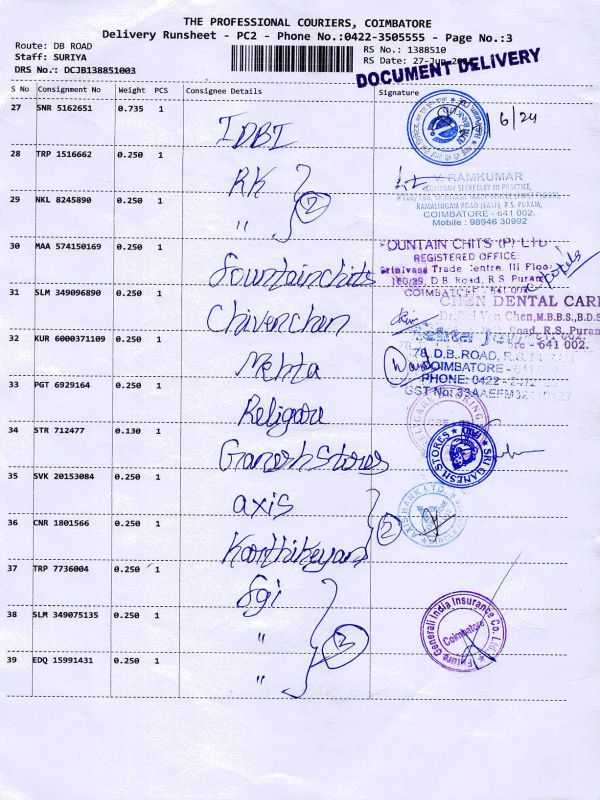 THE PROFESSIONAL COURIERS, COIMBATORE
Delivery Runsheet - PC2 - Phone No.:0422-3505555 - Page No.:3
Route: DB ROAD
Staff: SURIYA
DRS No.: DCJB138851003
RS No.: 1388510
RS Date: 27-Jun
DOCUMENT DELIVERY
S No Consignment No Weight PCS Consignee Details Signature
27 SNR 5162651 0.735 1 IDBI
/6/24
28 TRP 1516662 0.250 1 RK
V. RAMKUMAR
COMPANY SECRETARY IN PRACTICE,
29 NKL 8245890 0.250 1 "
2
RAMALINGAM ROAD (EAST), R.S. PURAM,
COIMBATORE - 641 002.
Mobile : 98946 30992
30 MAA 574150169 0.250 1 fountain chits
FOUNTAIN CHITS (P) LTD
REGISTERED OFFICE
Srinivasa Trade Centre, III Floor
160/29, D B Road, R S Puram
COIMBATORE
31 SLM 349096890 0.250 1 Chivenchen
CHEN DENTAL CARE
Chen, M.B.B.S., B.D.S
Road, R.S. Puram
- 641 002.
32 KUR 6000371109 0.250 1 Mehta
78, D.B. ROAD, R.S. PURAM
COIMBATORE - 641
PHONE: 0422 -
GST No: 33AAEFM32
33 PGT 6929164 0.250 1 Religare
34 STR 712477 0.130 1 Ganesh stores
SRI GANESH STORES
35 SVK 20153084 0.250 1 axis
AXIS BANK LTD.
36 CNR 1801566 0.250 1 Karthikeyan
2
37 TRP 7736004 0.250 1 fgi
38 SLM 349075135 0.250 1 "
3
Future Generali India Insurance Co. Ltd.
Coimbatore
39 EDQ 15991431 0.250 1 "